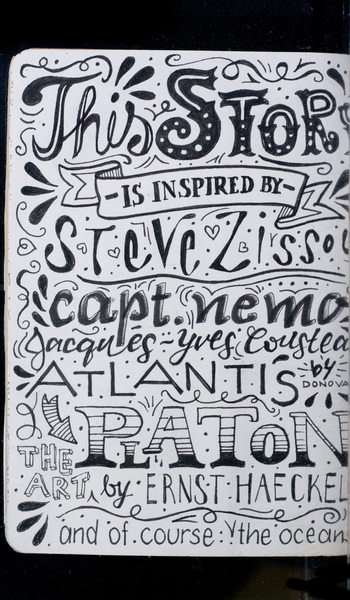 This STOR
-IS INSPIRED BY-
STeVe Zissou
capt. nemo
Jacques-Yves Coustea
ATLANTIS by
DONOVA
PLATON
THE
ART, by ERNST HAECKEL
and of course: the ocean